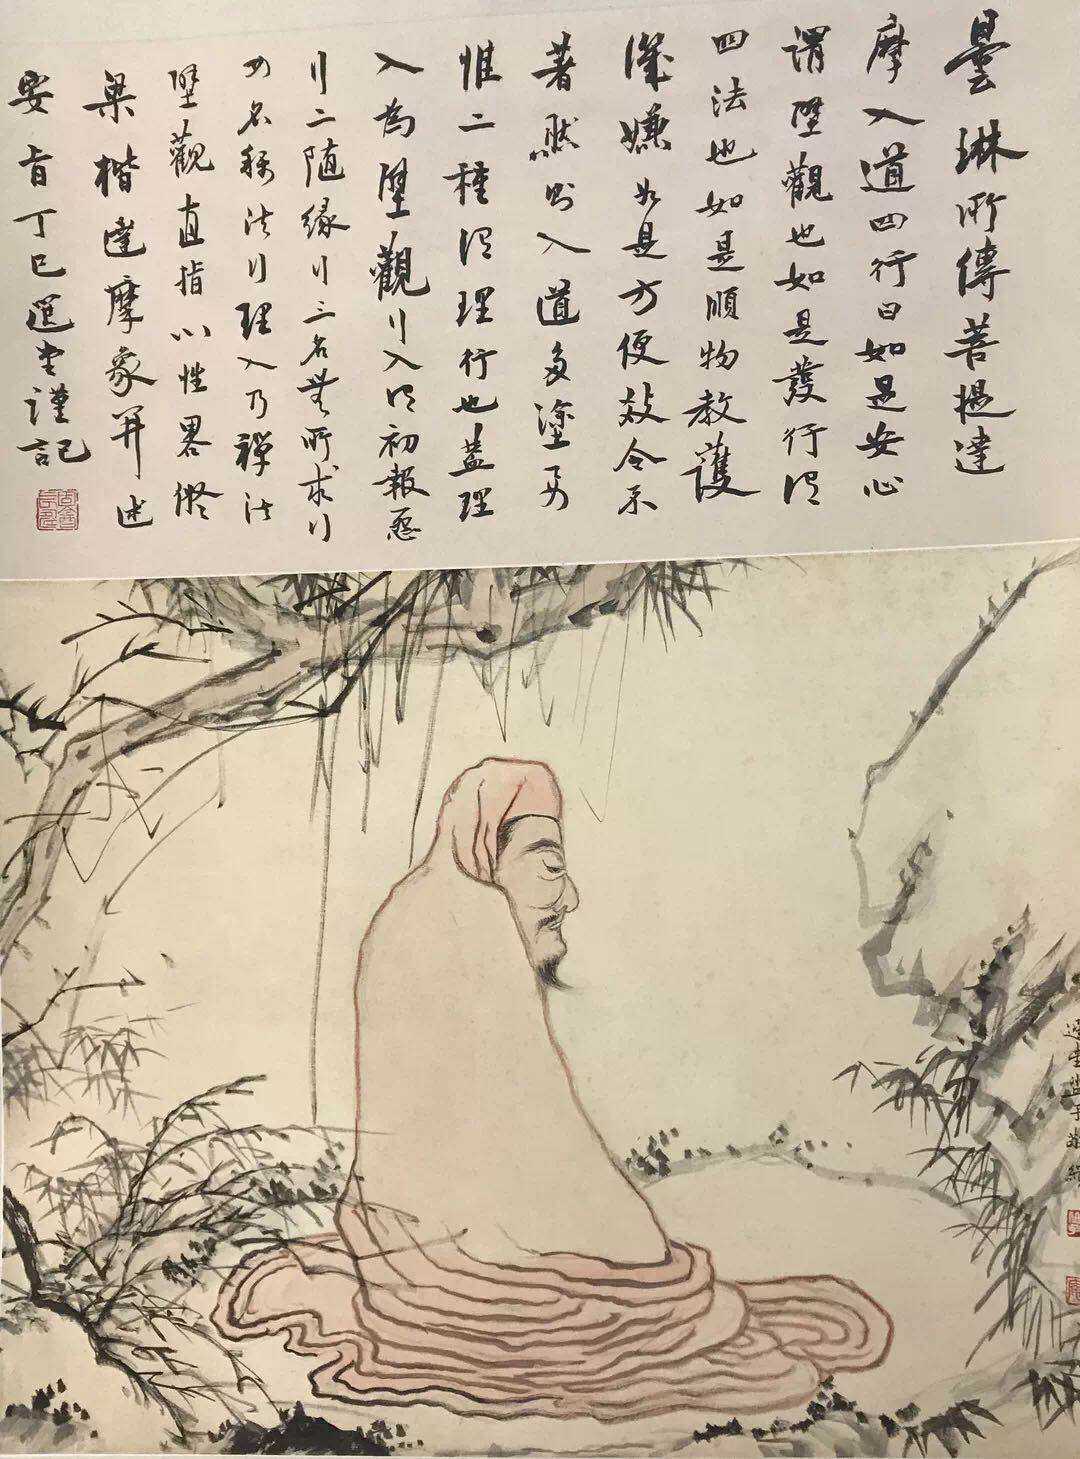 曇琳所傳菩提達
摩入道四行曰如是安心
謂壁觀也如是發行謂
四法也如是順物教護
譏嫌如是方便教令不
著然則入道多塗要
惟二種謂理行也蓋理
入為壁觀行入謂初報怨
行二隨緣行三名無所求行
四名稱法行理入乃禪法
壁觀直指心性畧儗
梁楷達摩象并述
要旨丁巳選堂謹記
選堂